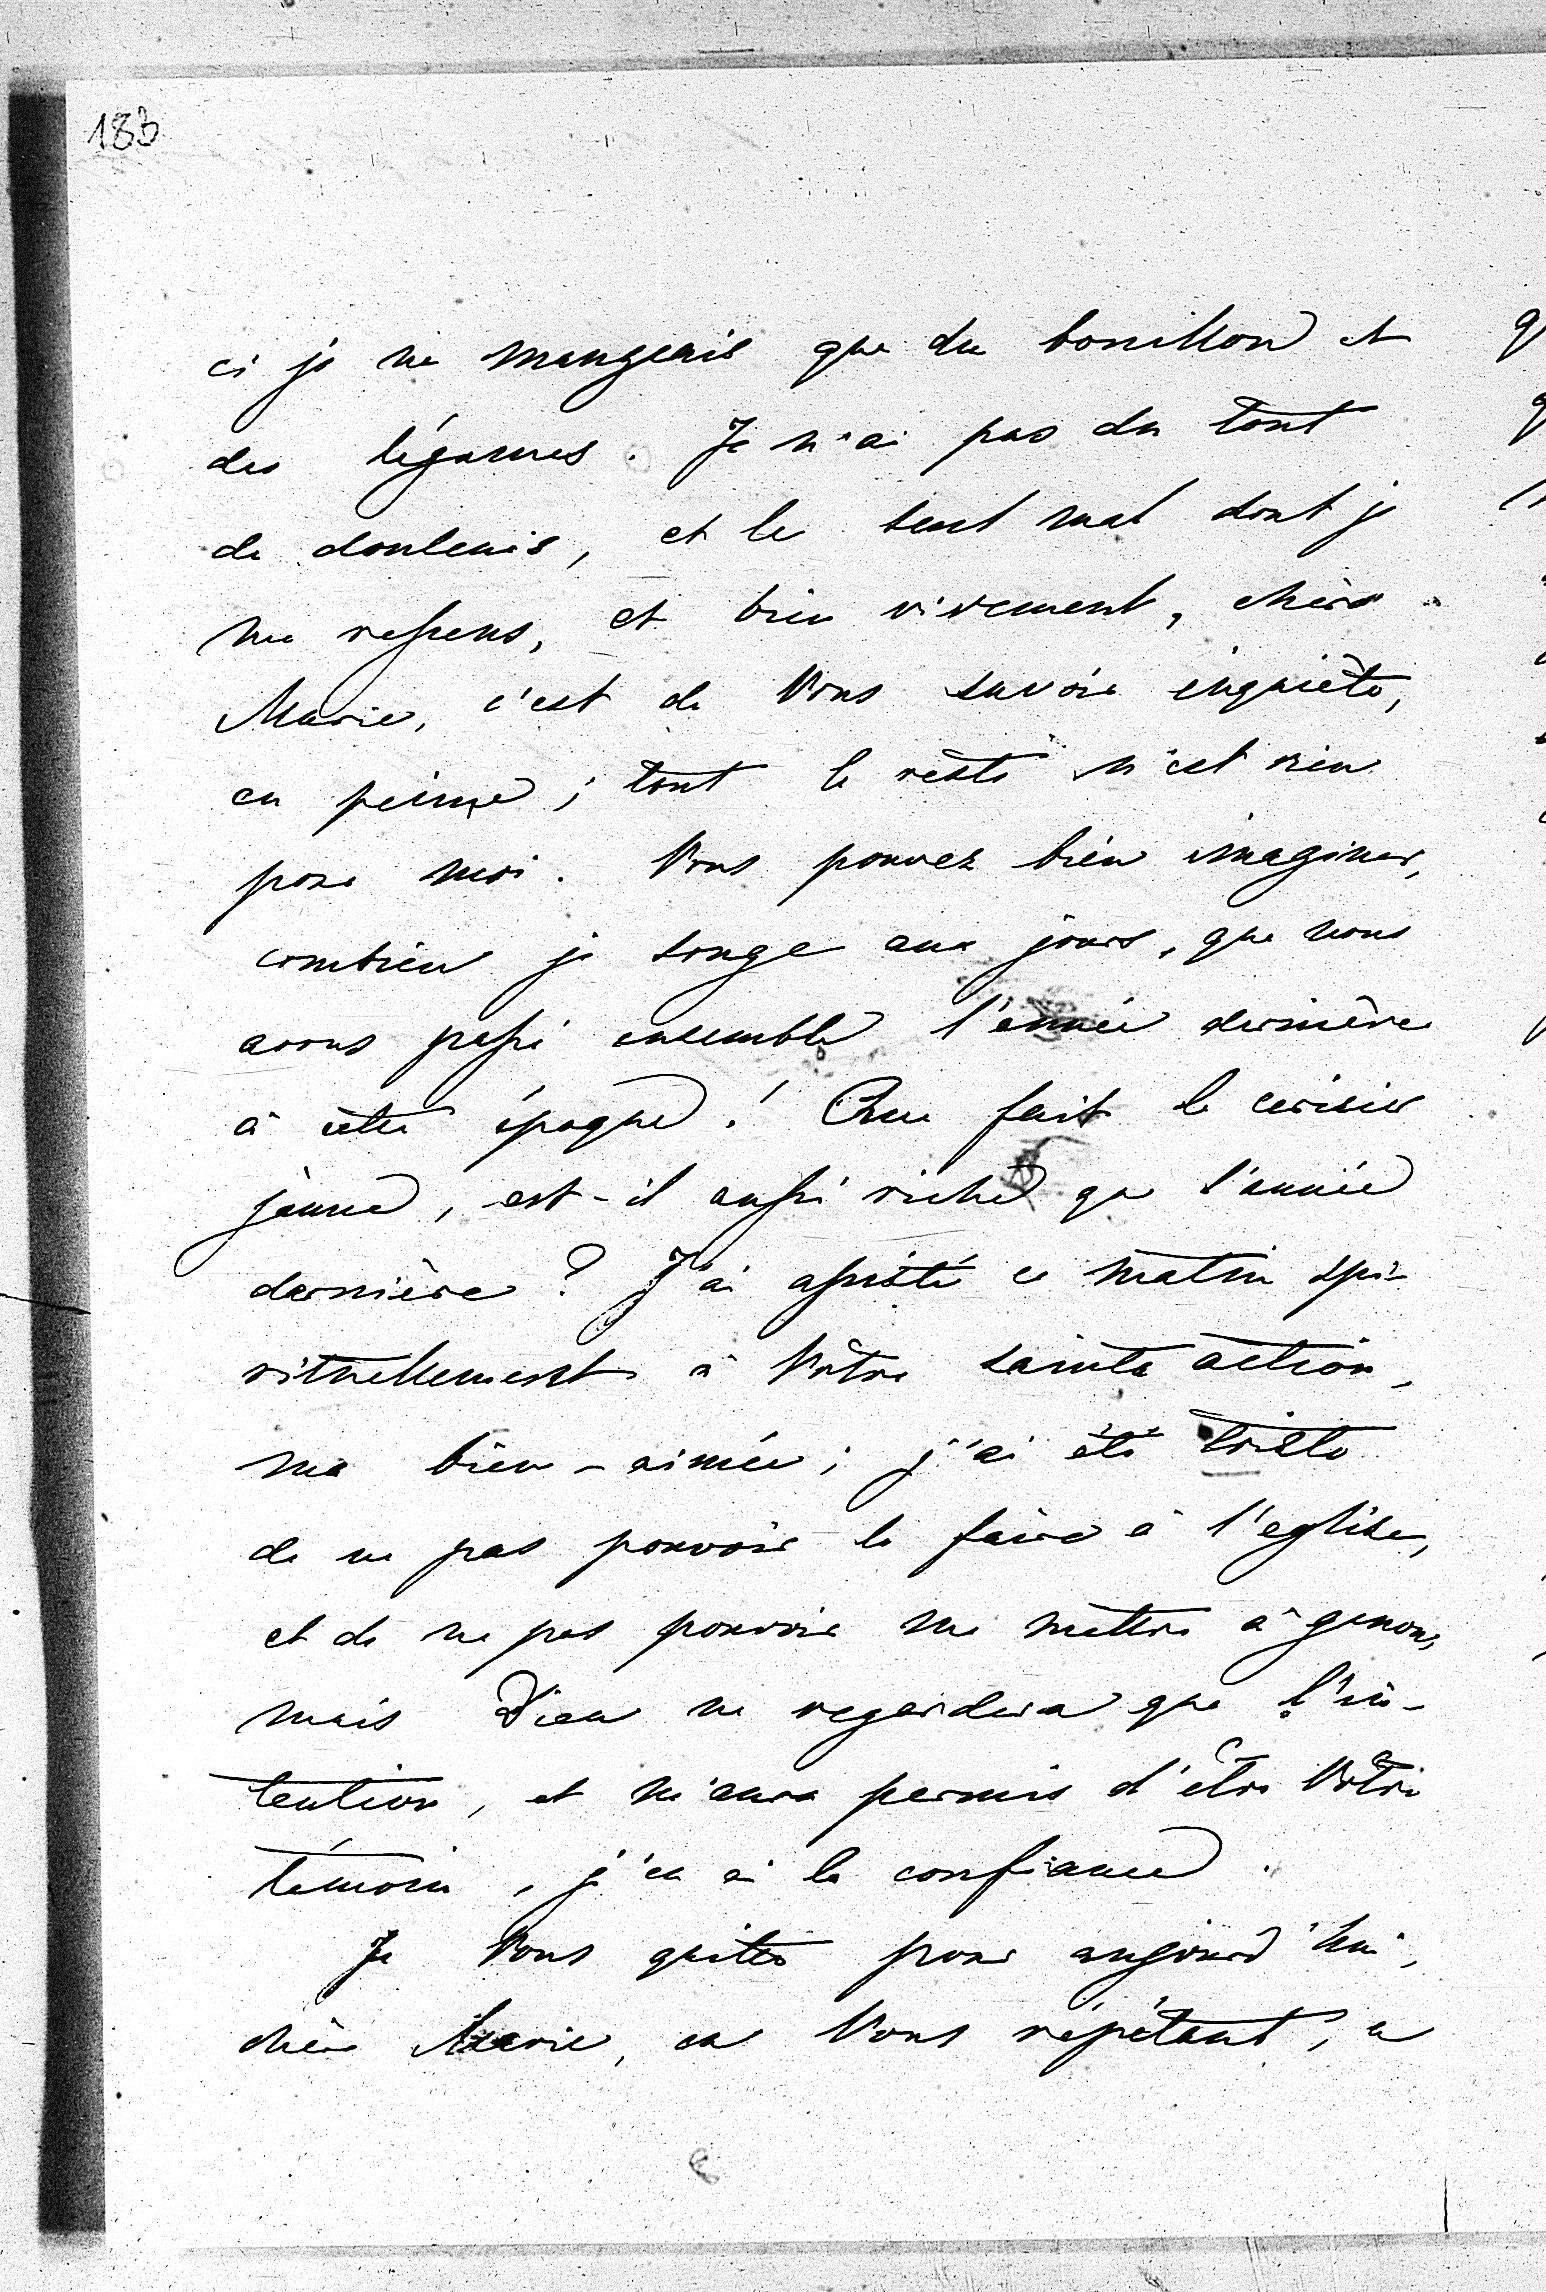 183
ci je ne mangeais que du bouillon et
des légumes. Je n'ai pas du tout
de douleurs, et le seul mal dont je
me ressens, et bien vivement, chère
Marie, c'est de Vous savoir inquiète,
en peine; tout le reste n'est rien
pour moi. Vous pouvez bien imaginer,
combien je songe aux jours, que nous
avons passé ensemble l'année dernière
à cette époque! Que fait le cerisier
jaune, est-il aussi riche que l'année
dernière? J'ai assisté ce matin spi-
rituellement à Votre sainte action,
ma bien-aimée; j'ai été triste
de ne pas pouvoir le faire à l'eglise,
et de ne pas pouvoir me mettre à genoux,
mais Dieu ne regardera que l'in-
tention, et m'aura permis d'être Votre
témoin, j'en ai la confiance.
Je Vous quitte pour aujourd'hui,
chère Marie, en Vous répétant, ce